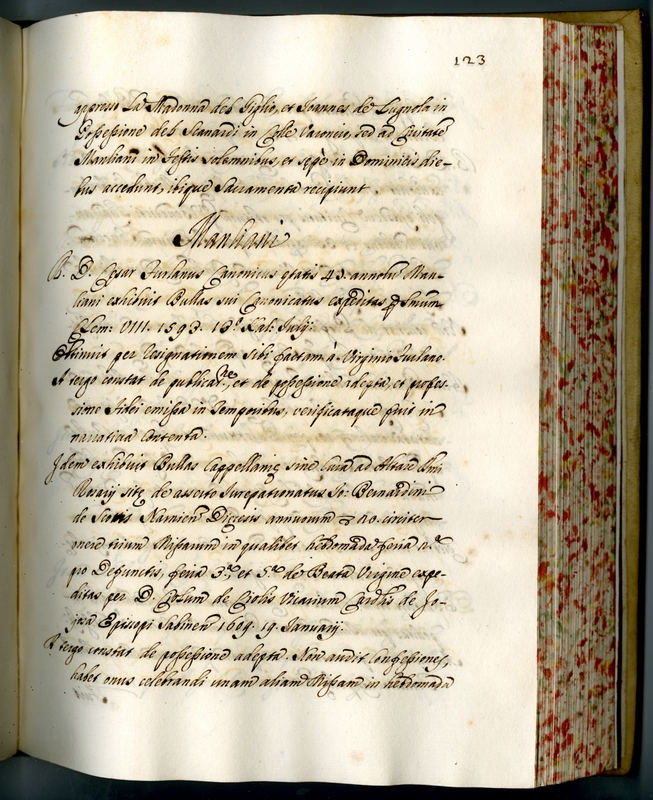 123
appresso La Madonna del Giglio, et Joannes de Lugnola in
Possessione del Scanardi in Colle Vaccario, sed ad Civitatē
Manliani in Festis solemnibus, et sepe in Dominicis die-
bus accedunt, ibique Sacramenta recipiunt.
Manliani
R. D. Cesar Furlanus Canonicus etatis 43. annoru Man-
liani exhibuit Bullas sui Canonicatus expeditas
Clem: VIII. 1593. 13. Kal: Julij.
Obtinuit per resignationem sibi factam à Virginio Furlano.
A tergo constat de publicatne, et de possessione adepta, et profes-
sione fidei emissa in Temporibus, verificataque fuit in
narrativa contenta.
Idem exhibuit Bullas Cappellanie sine Cura ad Altare Smi
Rosarij site de asserto Jurepatronatus Jo: Bernardini
de Scottis Narnien Diecesis annuorum 20. circiter
onere trium Missarum in qualibet hebdomada feria 2.a
pro Defunctis, feria 3.a, et 5.a de Beata Virgine expe-
ditas per D. de Ciolis Vicarium Cardlis de Jo-
josa Episcopi Sabinen 1604. 19. Januarij.
A tergo constat de possessione adepta. Non audit Confessiones,
habet onus celebrandi unam aliam Missam in hebdomada